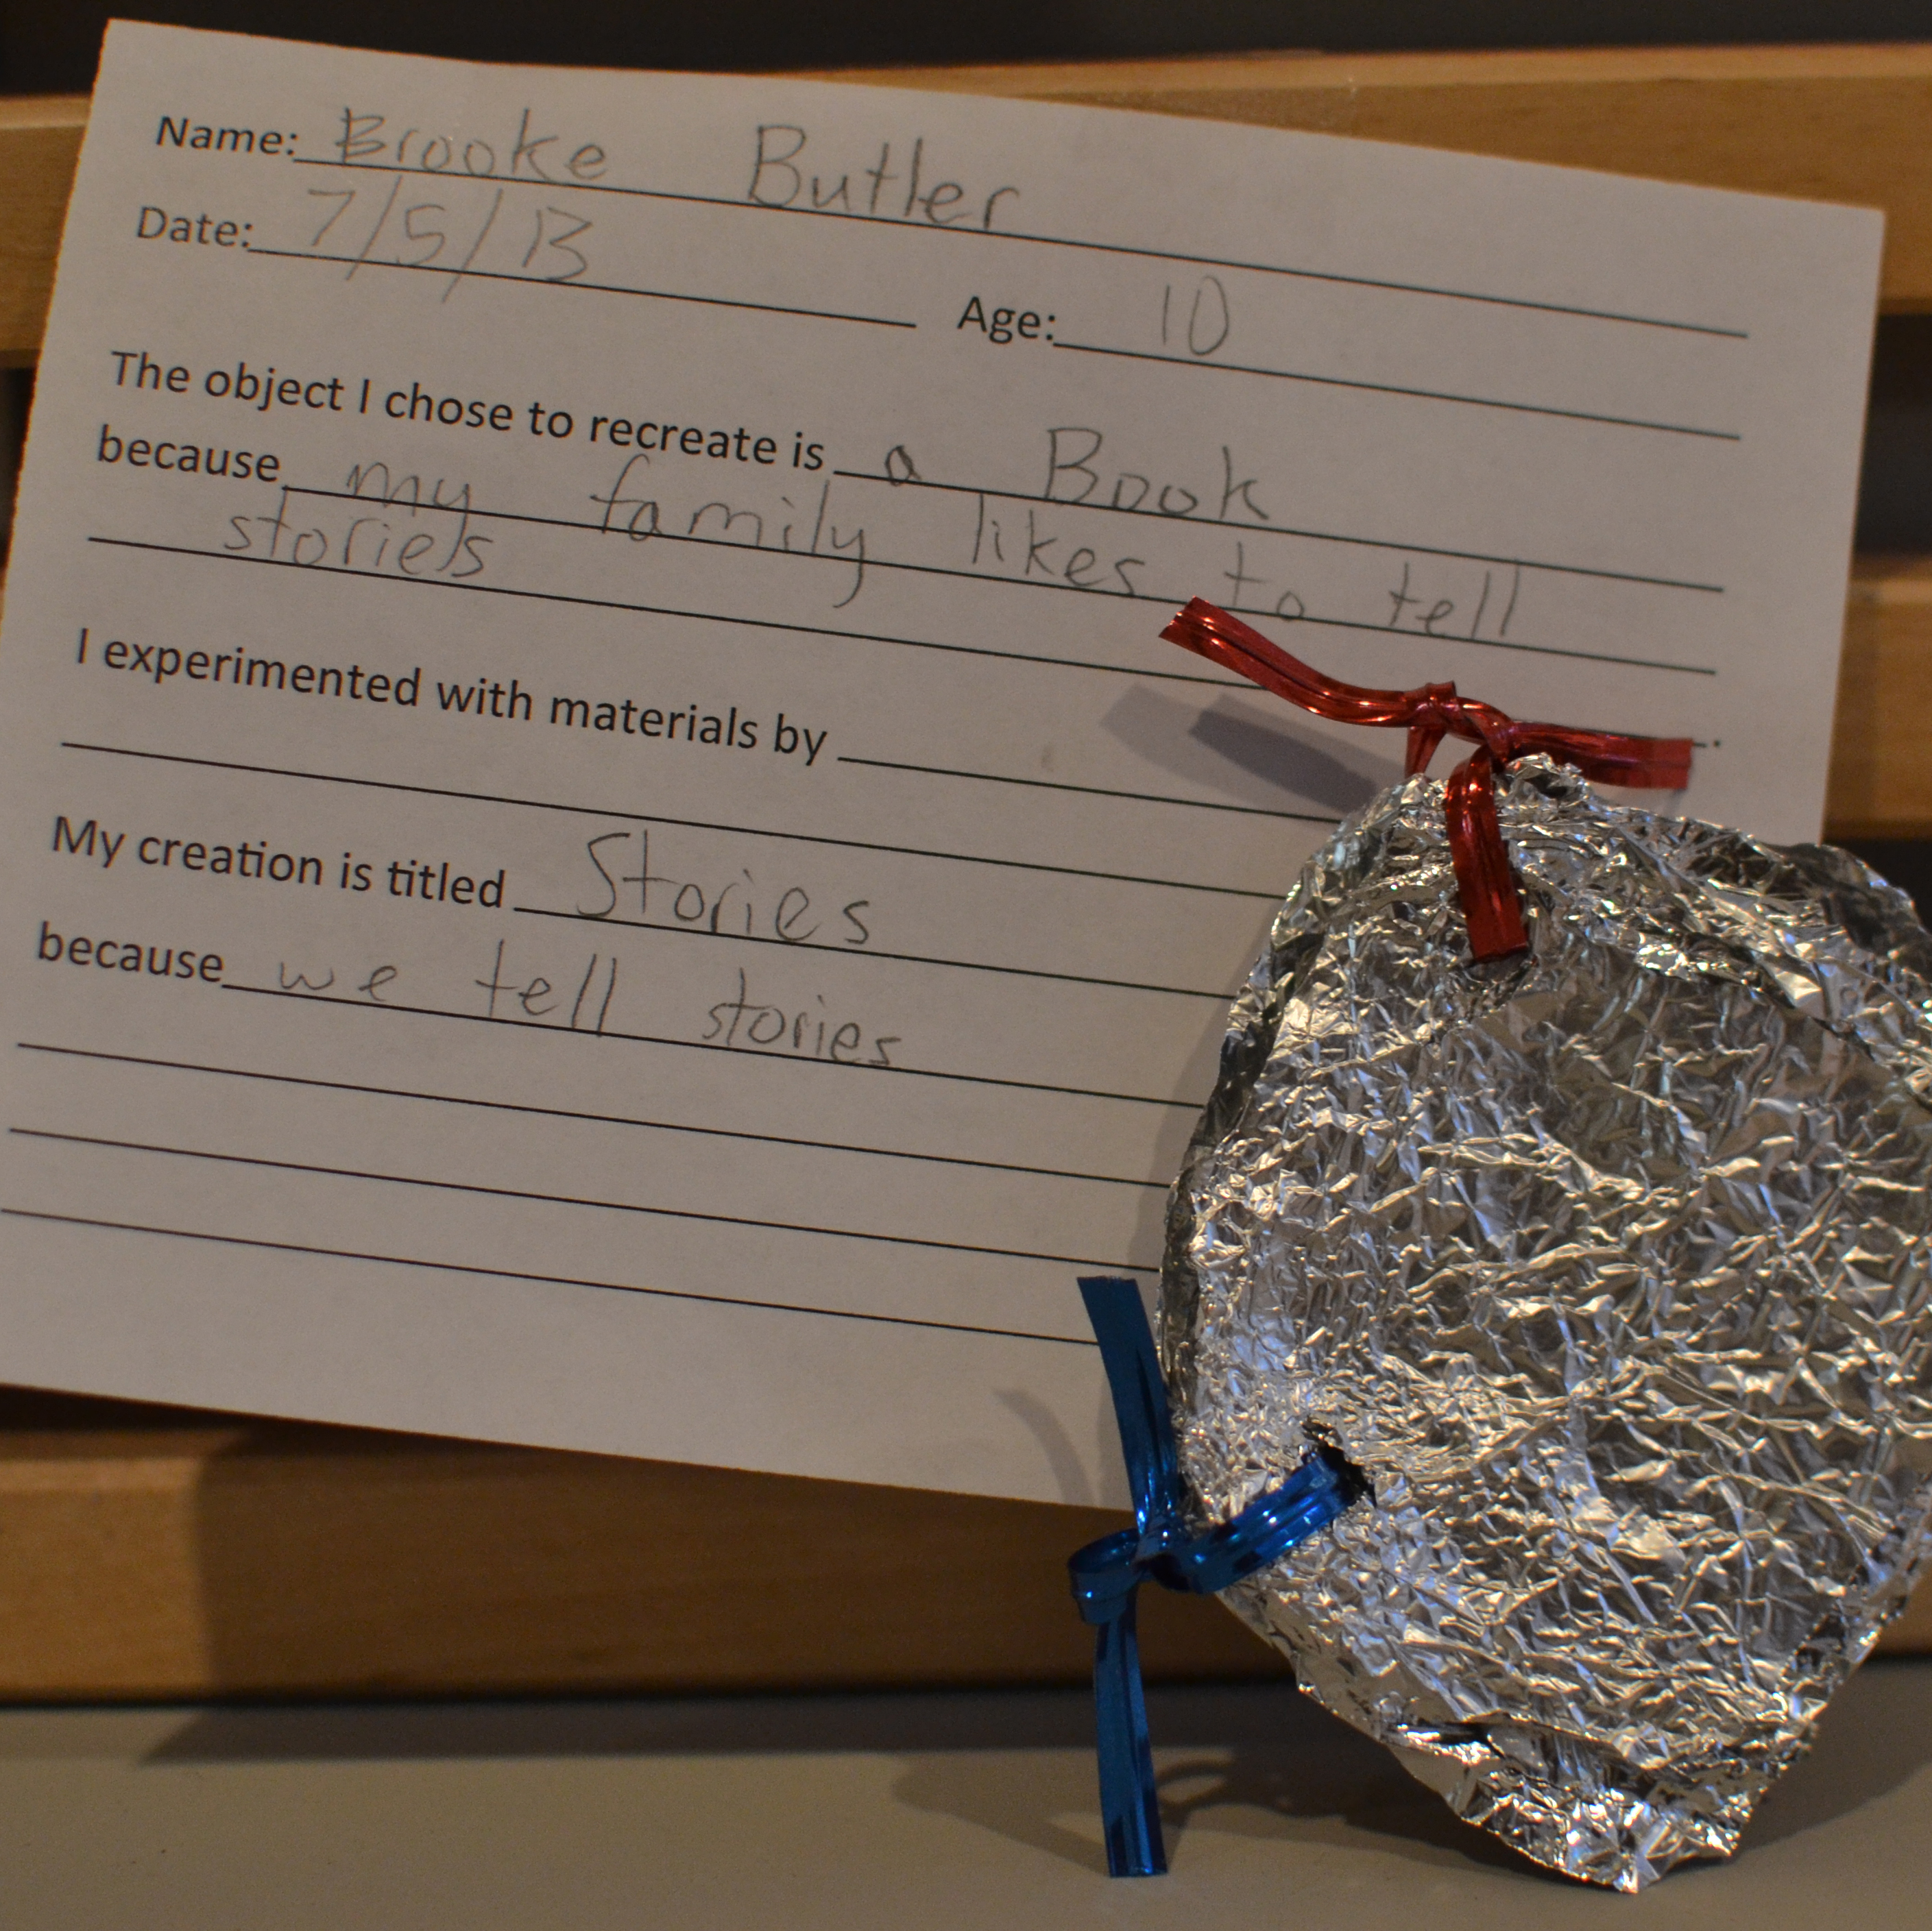 Name: Brooke Butler
Date: 7/5/13 Age: 10
The object I chose to recreate is a Book
because my family likes to tell
stories
I experimented with materials by
My creation is titled Stories
because we tell stories